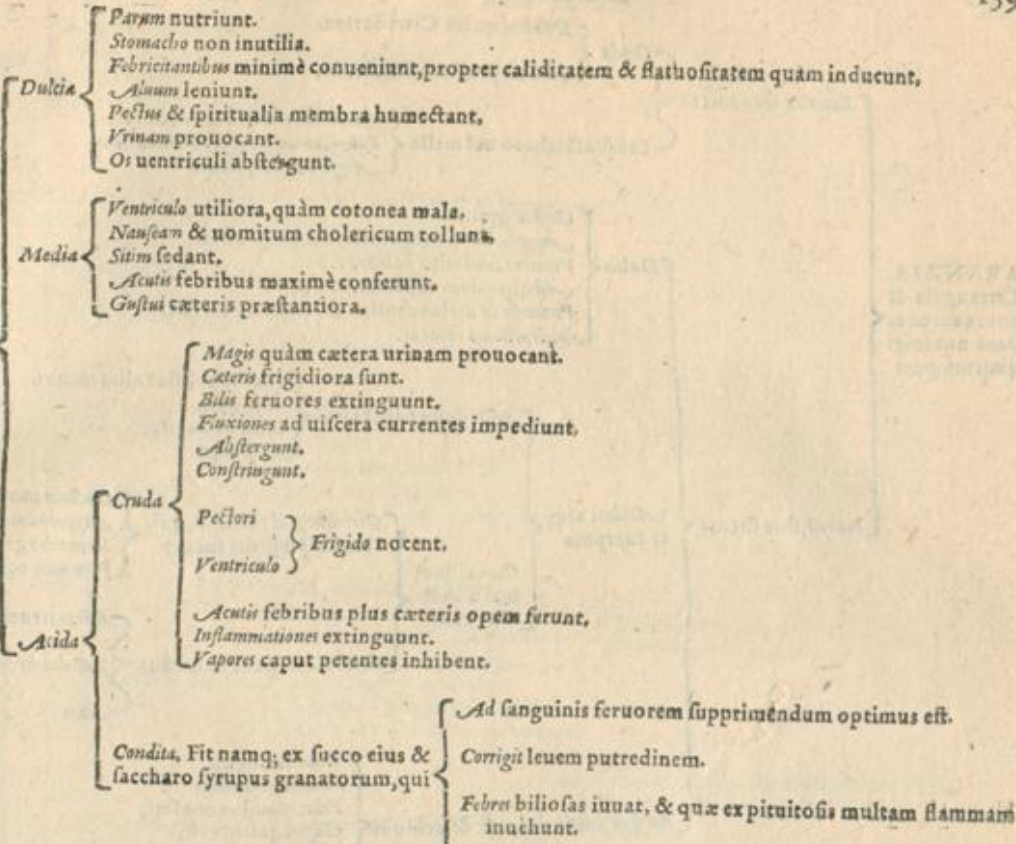 Dulcia
Parum nutriunt.
Stomacho non inutilia.
Febricitantibus minimè conueniunt, propter caliditatem & flatuositatem quam inducunt,
Aluum leniunt.
Pectus & spiritualia membra humectant,
Vrinam prouocant.
Os uentriculi abstergunt.
Media
Ventriculo utiliora, quàm cotonea mala.
Nauseam & uomitum cholericum tollunt,
Sitim sedant.
Acutis febribus maximè conferunt.
Gustui cæteris præstantiora.
Acida
Cruda
Magis quàm cætera urinam prouocant.
Cæteris frigidiora sunt.
Bilis feruores extinguunt.
Fluxiones ad uiscera currentes impediunt,
Abstergunt.
Constringunt.
Pectori
Ventriculo
Frigido nocent.
Acutis febribus plus cæteris opem ferunt,
Inflammationes extinguunt.
Vapores caput petentes inhibent.
Condita. Fit namq; ex succo eius &
saccharo syrupus granatorum, qui
Ad sanguinis feruorem supprimendum optimus est.
Corrigit leuem putredinem.
Febres biliosas iuuat, & quæ ex pituitosis multam flammam
inuehunt.